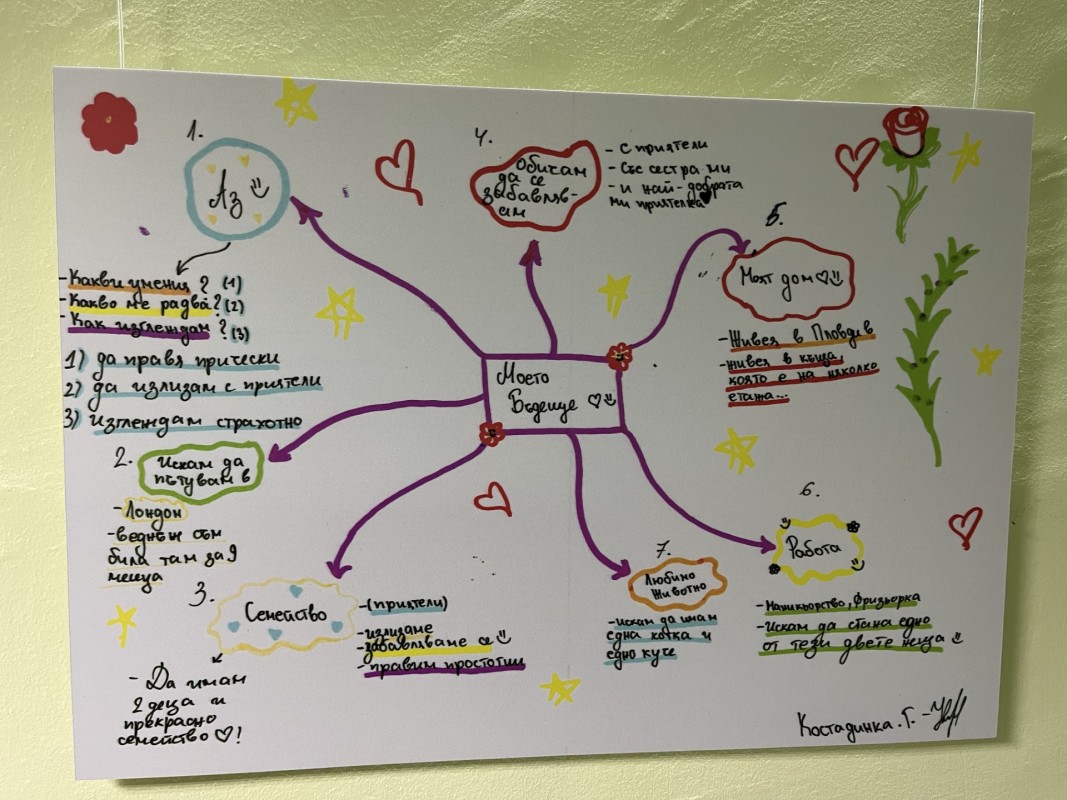 Моето
Бъдеще
1.
Аз
-Какви умения? (1)
-Какво ме радва? (2)
-Как изглеждам? (3)
1) да правя прически
2) да излизам с приятели
3) изглеждам страхотно
2.
Искам да
пътувам в
-Лондон
-веднъж съм
била там за 9
месеца
3.
Семейство
-(приятели)
-излизаме
-забавляваме се
-правим простотии
- Да имам
2 деца и
прекрасно
семейство ♡!
4.
Обичам
да се
забавляв-
ам
- с приятели
- Със сестра ми
- и най-добрата
ми приятелка
5.
Моят дом ♡
-Живея в Пловдив
-живея в къща,
която е на няколко
етажа...
6.
Работа
-Маникюрство, Фризьорка
-Искам да стана едно
от тези двете неща
7.
Любимо
Животно
-Искам да имам
една котка и
едно куче
Костадинка.Г.